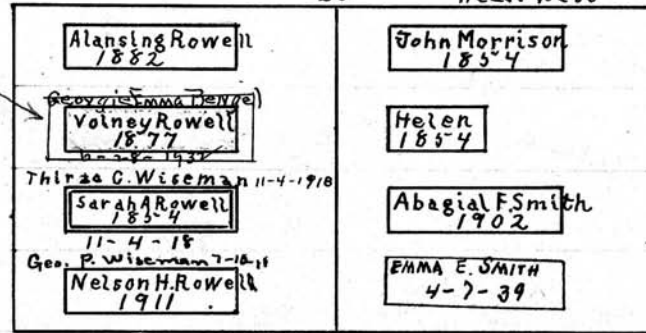 Alansing Rowell
1882
Georgie Emma Bengel
Volney Rowell
1877
Thirza C. Wiseman 11-4-1918
Sarah A Rowell
1854
11-4-18
Geo. P. Wiseman
Nelson H. Rowell
1911
John Morrison
1854
Helen
1854
Abagial F. Smith
1902
EMMA E. SMITH
4-7-39